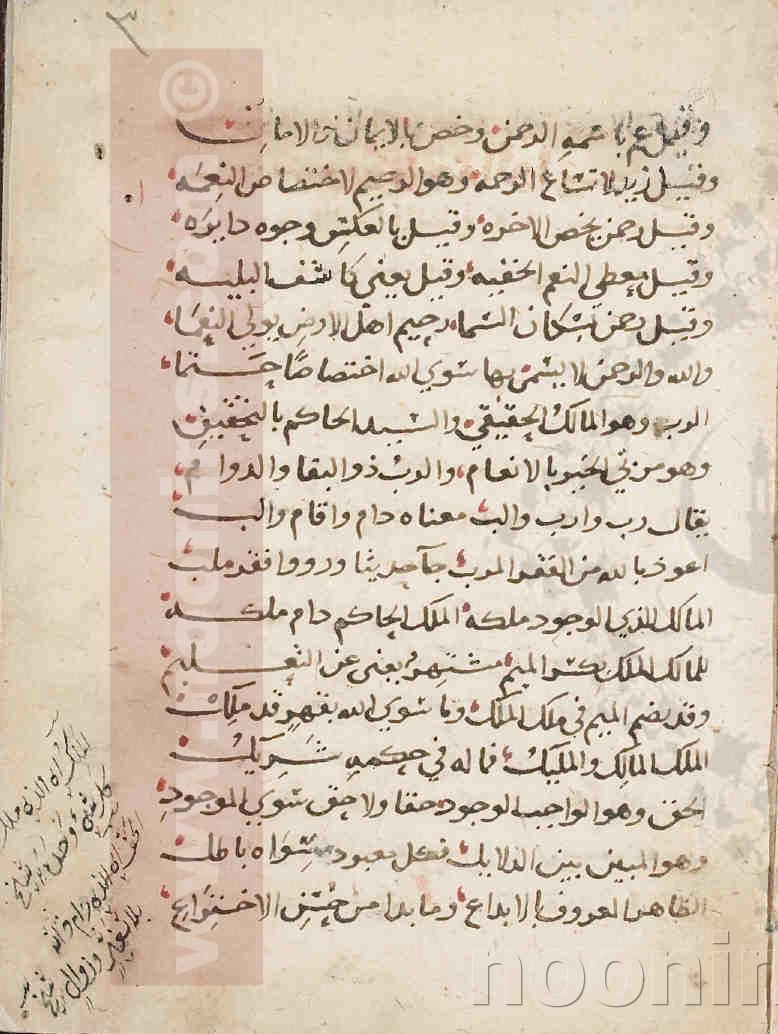 ٣
وقيل عم باسمه الرحمن وخص بالايمان والامان
وقيل زيد لاتساع الرحمه وهو الرحيم لاختصاص النعمه
وقيل رحمن يخص الاخره وقيل بالعكس وجوه دايره
وقيل معطي النعم الخفيه وقيل يعني كاشف البليه
وقيل رحمن بسكان السما رحيم اهل الارض يولي النعما
والله والرحمن لا يسمى بها سوي الله اختصاصا حتما
الرب وهو المالك الحقيقي والسيد الحاكم بالتحقيق
وهو مربي الخبر بالانعام والرب ذو البقا والدوام
يقال رب وارب والب معناه دام واقام والب
اعوذ بالله من الفقر المرب جآ حديثا ورووا فقد ملب
المالك الذي الوجود ملكه الملك الحاكم دام ملكه
للمالك الملك بكسر الميم مشتهر يغني عن التعليم
وقد بضم الميم في ملك الملك وما سوي الله بقهر قد ملك
الملك المالك والمليك فما له في حكمه شريك
الحق وهو الواجب الوجود حقا ولا حق سوي الموجود
وهو المبين بين الدلايل فكل معبود سواه باطل
الظاهر المعروف بالابداع وما بدا من حسن الاختراع
www.noorinst.com ©
noorin